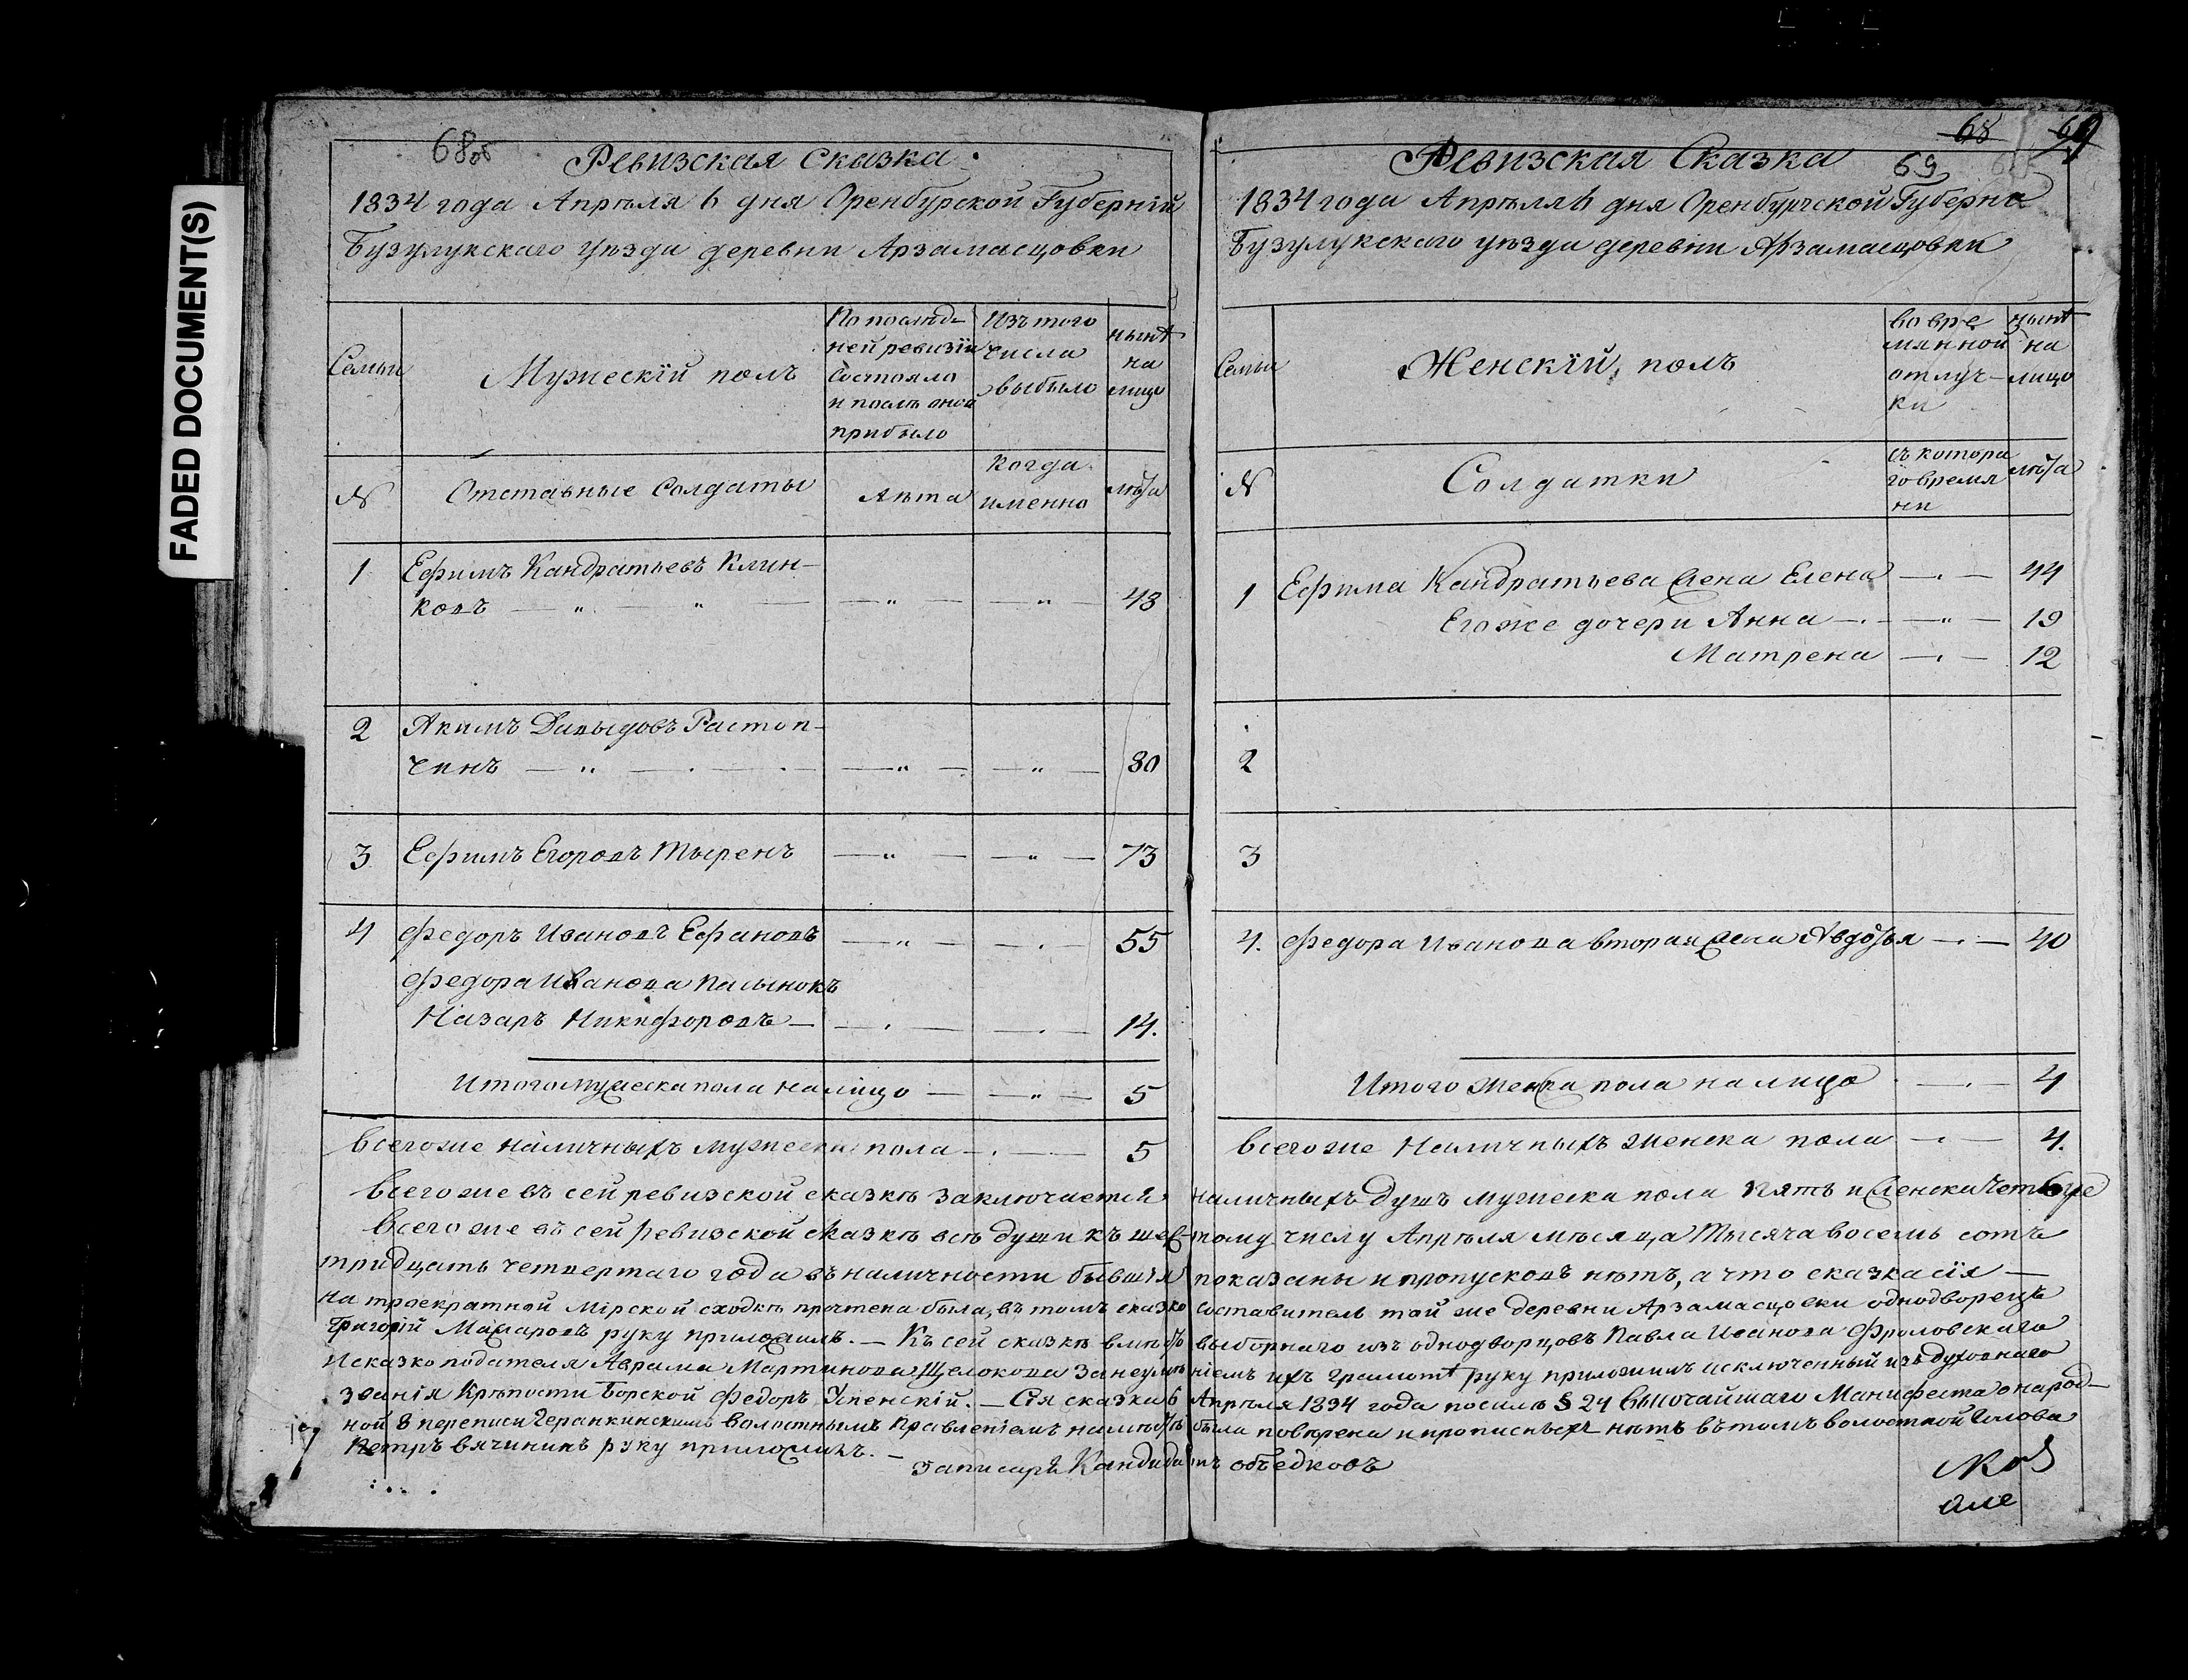 FADED DOCUMENT(S)
68об
Ревизская сказка.
1834 года Апрѣля 6 дня Оренбурской Губерніи
Бузулукскаго уѣзда деревни Арзамасцовки
Семьи
Мужескій полъ
По послѣд-
ней ревизіи
состояло
и послѣ оной
прибыло
Изъ того
числа
выбыло
нынѣ
на
лицо
№
Отставные Солдаты
лѣта
когда
именно
лѣта
1 Ефимъ Кандратьевъ Клин-
ковъ 48
2 Акимъ Давыдовъ Растоп-
чинъ 80
3 Ефимъ Егоровъ Тыренъ 73
4 Федоръ Ивановъ Ефановъ 55
Федора Иванова
Назаръ Никифоровъ 14.
Итого мужеска пола на лицо 5
всего же наличныхъ мужеска пола 5
68 69
69
Ревизская Сказка
1834 года Апрѣля 6 дня Оренбургской Губерніи
Бузулукскаго уѣзда деревни Арзамасцовки
Семьи
Женскій полъ
во вре
мянной
отлуч-
ки
нынѣ
на
лицо
№
Солдатки
съ котора
го время
ни
лѣта
1 Ефима Кандратьева жена Елена 44
Его же дочери Анна 19
Матрена 12
2
3
4. Федора Иванова вторая жена Авдотья 40
Итого женска пола на лицо 4
всего же Наличныхъ женска пола 4.
всего же въ сей ревизской сказкѣ заключается наличныхъ душъ мужеска пола пять и женска четыре
всего же въ сей ревизской сказкѣ всѣ души къ шес-тому числу Апрѣля мѣсяца тысяча восемь сотъ
тридцать четвертаго года въ наличности бывшія показаны и пропусковъ нѣтъ, а что сказка сія
на троекратной Мірской сходкѣ прочтена была, въ томъ сказко составитель той же деревни Арзамасцовки однодворецъ
Григорій руку приложилъ. — Къ сей сказкѣ вмѣсто выборнаго изъ однодворцовъ Павла Иванова Фроловскаго
и сказко подателя Аврама Мартинова Щелокова за неумѣніемъ ихъ грамотѣ руку приложилъ исключенный изъ духовнаго
званія Крѣпости Борской Федоръ Успенскій. — Сія сказка 6 Апрѣля 1834 года по силѣ § 24 высочайшаго Манифеста о народ-
ной 8 переписи Геранкинскимъ волостнымъ Правленіемъ на мѣстѣ была повѣрена и прописныхъ нѣтъ въ томъ волостной Голова
Петръ Вячининъ руку приложилъ. —
записарь Кандидатъ Объедковъ